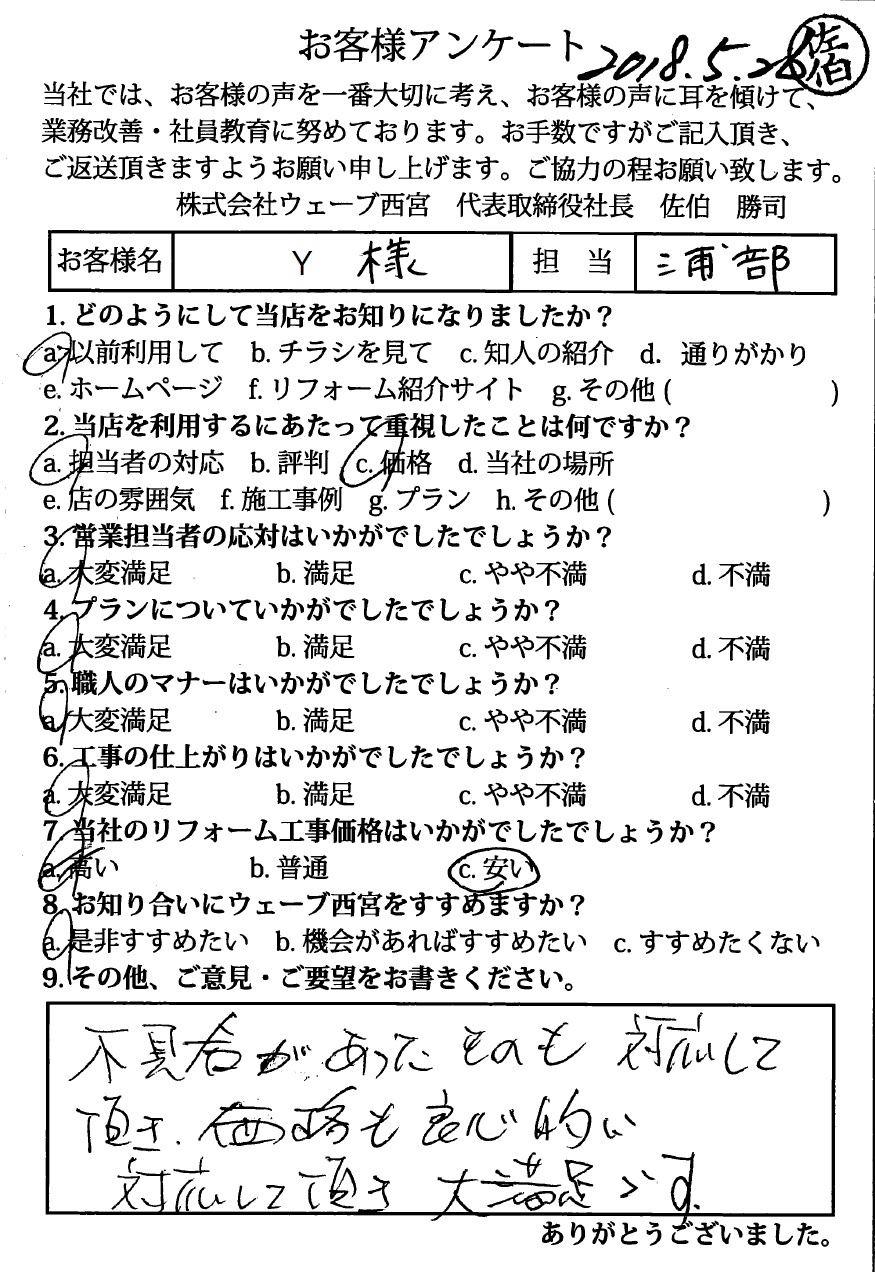 お客様アンケート 2018.5.28 佐伯
当社では、お客様の声を一番大切に考え、お客様の声に耳を傾けて、
業務改善・社員教育に努めております。お手数ですがご記入頂き、
ご返送頂きますようお願い申し上げます。ご協力の程お願い致します。
株式会社ウェーブ西宮 代表取締役社長 佐伯 勝司
お客様名 Y 様 担 当 三浦 部
1. どのようにして当店をお知りになりましたか?
a. 以前利用して b. チラシを見て c. 知人の紹介 d. 通りがかり
e. ホームページ f. リフォーム紹介サイト g. その他 ( )
2. 当店を利用するにあたって重視したことは何ですか?
a. 担当者の対応 b. 評判 c. 価格 d. 当社の場所
e. 店の雰囲気 f. 施工事例 g. プラン h. その他 ( )
3. 営業担当者の応対はいかがでしたでしょうか?
a. 大変満足 b. 満足 c. やや不満 d. 不満
4. プランについていかがでしたでしょうか?
a. 大変満足 b. 満足 c. やや不満 d. 不満
5. 職人のマナーはいかがでしたでしょうか?
a. 大変満足 b. 満足 c. やや不満 d. 不満
6. 工事の仕上がりはいかがでしたでしょうか?
a. 大変満足 b. 満足 c. やや不満 d. 不満
7. 当社のリフォーム工事価格はいかがでしたでしょうか?
a. 高い b. 普通 c. 安い
8. お知り合いにウェーブ西宮をすすめますか?
a. 是非すすめたい b. 機会があればすすめたい c. すすめたくない
9. その他、ご意見・ご要望をお書きください。
不具合があったそのも 対応して
頂き、価格も良心的い
対応して頂き 大満足です。
ありがとうございました。